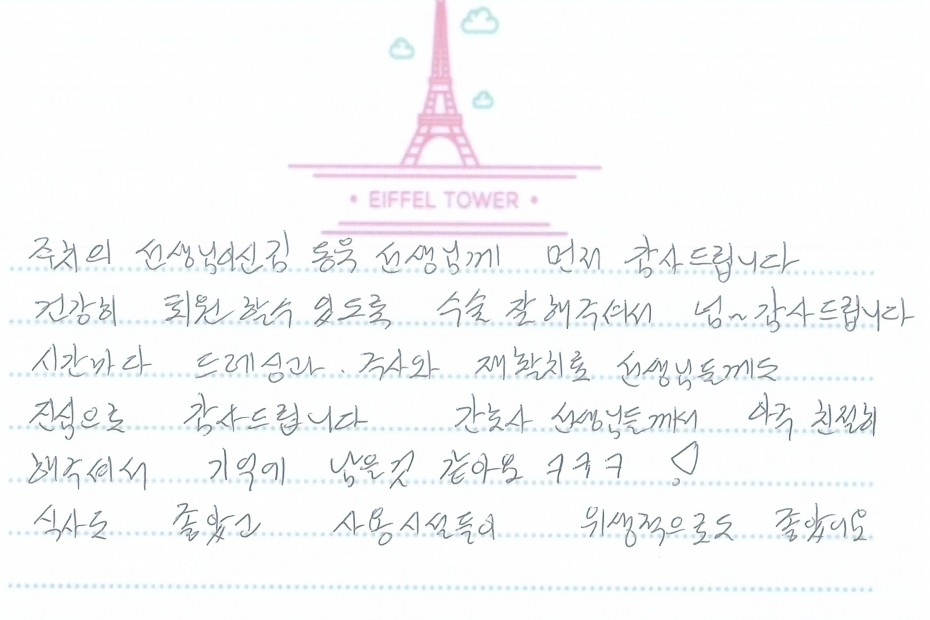 EIFFEL TOWER
주치의 선생님이신 김동욱 선생님께 먼저 감사드립니다
건강히 퇴원할수 있도록 수술 잘해주셔서 넘~감사드립니다
시간마다 드레싱과. 주사와 재활치료 선생님들께도
진심으로 감사드립니다 간호사 선생님들께서 아주 친절히
해주셔서 기억에 남을것 같아요 ㅋㅋㅋ
식사도 좋았고 사용시설들이 위생적으로도 좋았어요